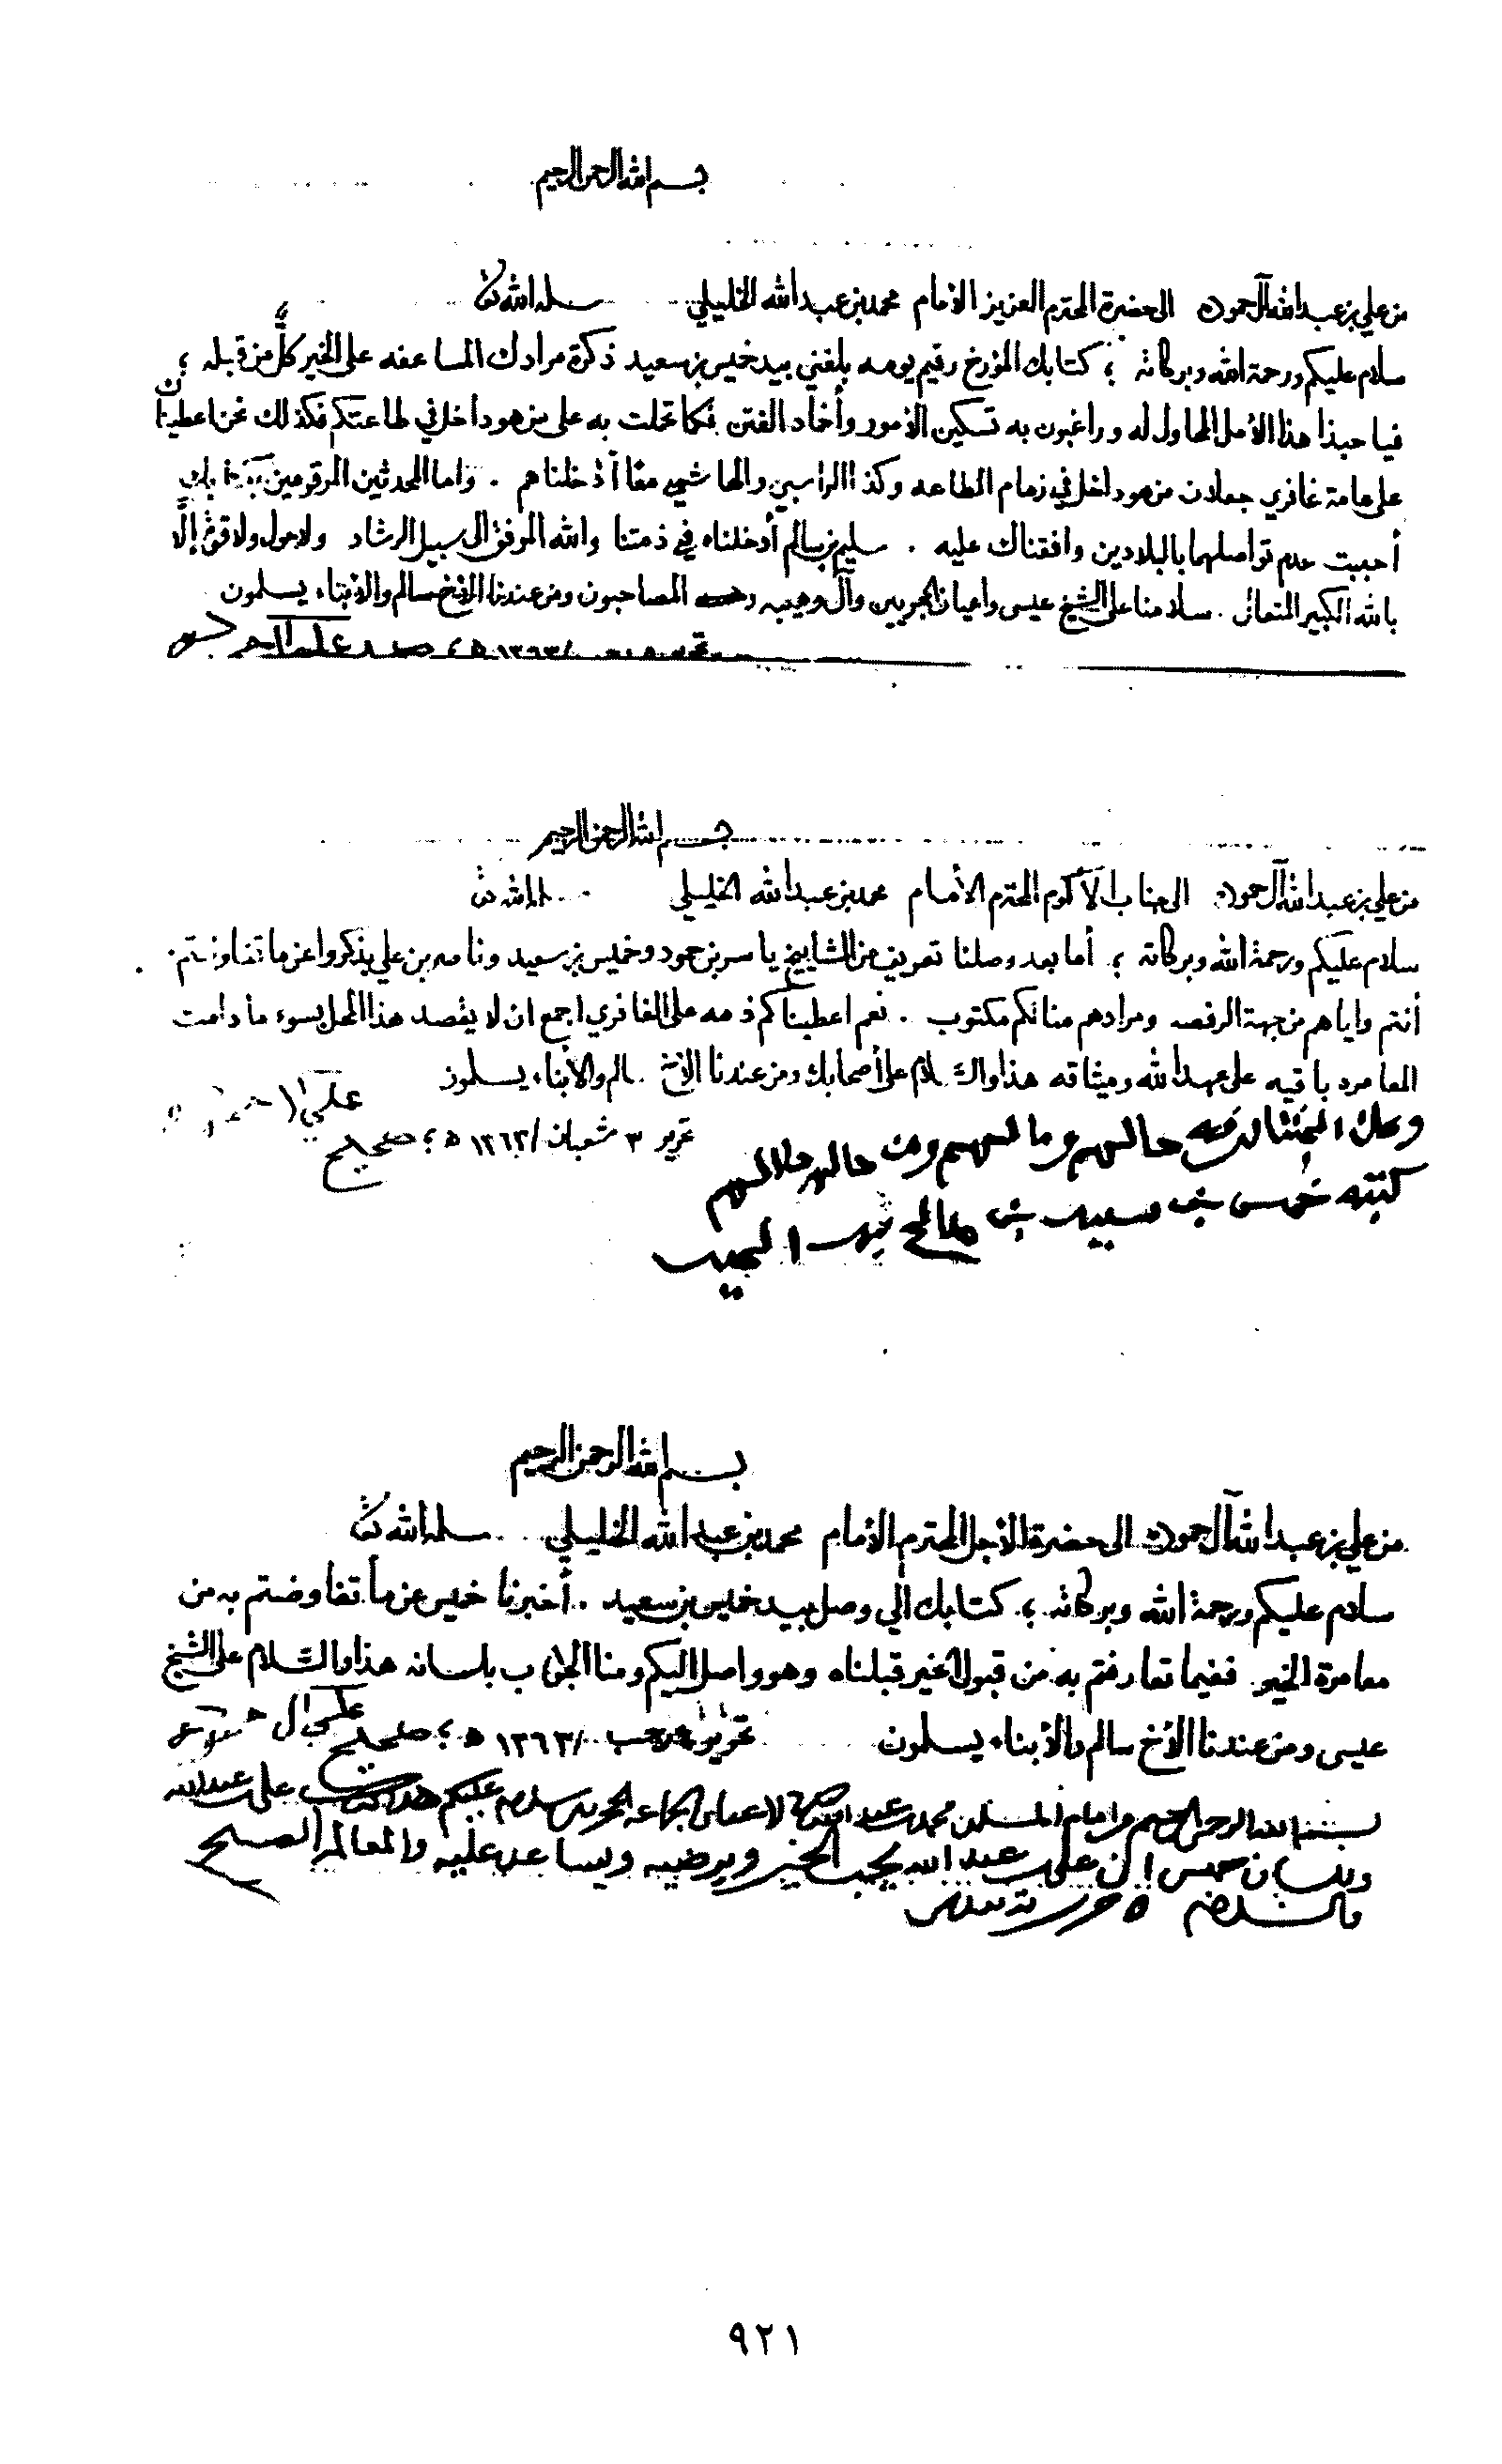 بسم الله الرحمن الرحيم
من علي بن عبدالله آل حموده الى حضرة المحترم العزيز الامام محمد بن عبدالله الخليلي سلمه الله تعالى
سلام عليكم ورحمة الله وبركاته ؛ كتابك المؤرخ رقيم يومه بلغني بيد خميس بن سعيد ذكرة مرادك المساعفه على الخير كلٌّ من قبله ؛
فيا حبذا هذا الأمل المحاول له وراغبون به تسكين الأمور وأخماد الفتن فكما تحملت به على من هو داخل في طاعتكم فكذلك نحن اعطينا
على عامة غافري جعلان من هو داخل في زمام الطاعه وكذا الراسبي والهاشمي معنا أدخلناهم . واما المحدثين المرقومين بكتابك
أحببت عدم تواصلهما بالبلادين وافقناك عليه . سليم بن سالم أدخلناه في ذمتنا والله الموفق الى سبيل الرشاد ولا حول ولا قوة إلَّا
بالله الكبير المتعالى . سلامنا على الشيخ عيسى واعيان الحجريين وآل وهيبه المصاحبون ومن عندنا الأخ سالم والأبناء يسلمون
بسم الله الرحمن الرحيم
من علي بن عبدالله آل حموده الى جناب الأكرم المحترم الأمام محمد بن عبدالله الخليلي
سلام عليكم ورحمة الله وبركاته ؛ أما بعد وصلنا تعريف من المشايخ ياسر بن حمود وخميس بن سعيد وناصر بن علي يذكروا عن ما تفاوضتم
أنتم واياهم من جهة الرفصه ومرادهم منا لكم مكتوب . نعم اعطيناكم ذمه على الغافري اجمع ان لا يقصد هذا المحل بسوء ما دامت
المعامره باقيه على عهد الله وميثاقه هذا والسلام على أصحابك ومن عندنا الأخ سالم والأبناء يسلمون
تحرير ٣ شعبان / ١٣٦٣ ه ؛ صحيح علي
حالهم وما لهم ومن
كتبه خميس بن سعيد بن صالح بيده
بسم الله الرحمن الرحيم
من علي بن عبدالله آل حموده الى حضرة الأجل المحترم الأمام محمد بن عبدالله الخليلي سلمه الله تعالى
سلام عليكم ورحمة الله وبركاته ؛ كتابك الي وصل بيد خميس بن سعيد . أخبرنا خميس عن ما تفاوضتم به من
معامرة الخير ففيما تعارفتم به من قبول الخير قبلناه وهو واصل اليكم ومنا الجواب بلسانه هذا والسلام على الشيخ
عيسى ومن عندنا الأخ سالم والأبناء يسلمون تحرير رجب / ١٣٦٣ ه ؛ صحيح علي آل حموده
بسم الله الرحمن الرحيم من امام المسلمين محمد بن عبدالله الى الجماعه سلام عليكم هذا كتاب علي بن عبدالله
وبلسان خميس ان علي بن عبدالله يحب الخير ويرضيه ويساعد عليه
والسلام
٩٢١